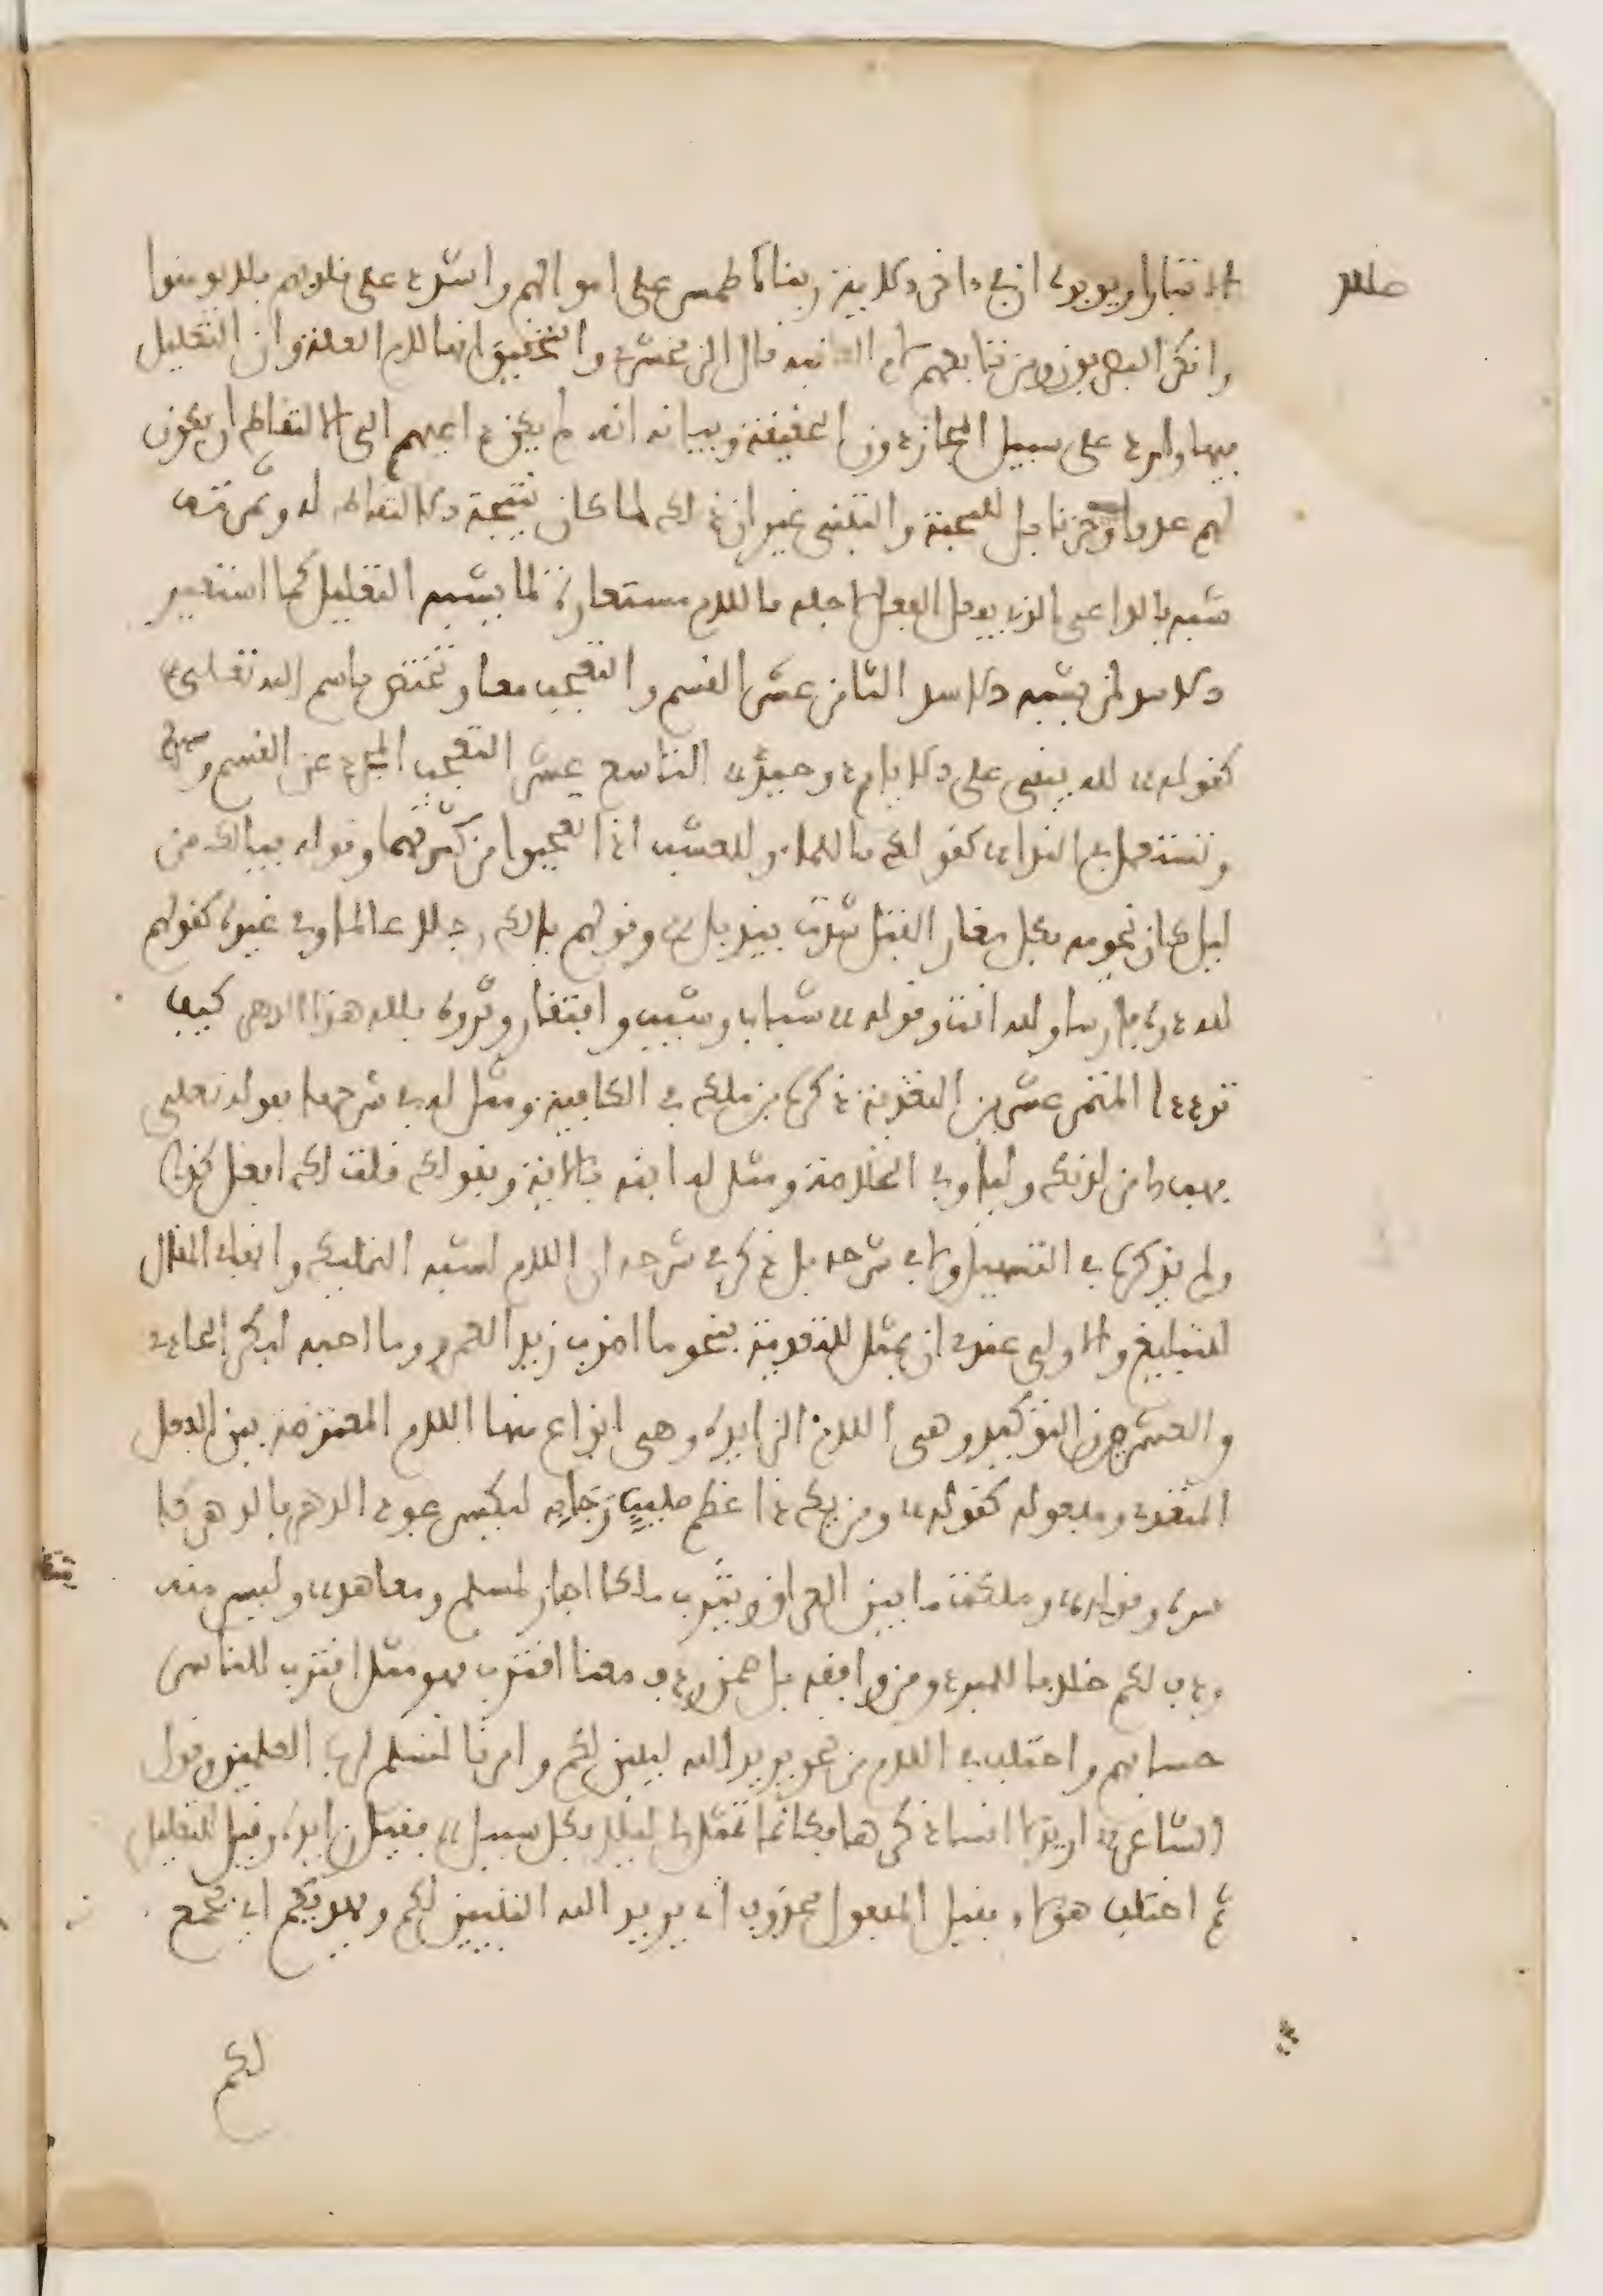 الاختيار ويويده ان في داخر الاية ربنا اطمس على اموالهم واشدد على قلوبهم فلا يومنوا
وانكر البصريون ومن تابعهم لام العاقبة قال الزمخشري والتحقيق انها لام العلة وان التعليل
فيها وارد على سبيل المجاز دون الحقيقة وبيانه انه لم يكن داعيهم الى الالتقاط ان يكون
لهم عدوا وحزنا بل المحبة والتبني غير ان ذلك لما كان نتيجة التقاطهم له وثمرته
شبه بالداعي الذي يفعل الفعل لاجله فاللام مستعارة لما يشبه التعليل كما استعير
الاسد لمن يشبه الاسد الثاني عشر القسم والتعجب معا وتختص باسم الله تعالى
كقوله لله يبقى على الايام ذو حيد التاسع عشر التعجب المجرد عن القسم
وتستعمل في النداء كقولك يا للماء ويا للعشب اذا تعجبوا من كثرتهما وقوله فيالك من
ليل كان نجومه بكل مغار الفتل شدت بيذبل وقولهم يا لك رجلا عالما وفي غيره كقولهم
لله دره فارسا ولله انت وقوله شباب وشيب وافتقار وثروة فلله هذا الدهر كيف
ترددا المتمم عشرين التعدية ذكره ابن ملك في الكافية ومثل له في شرحها بقوله تعلى
فهب لي من لدنك وليا وفي الخلاصة ومثل له ابنه بالاية وبقولك قلت لك افعل كذا
ولم يذكره في التسهيل ولا في شرحه بل ذكر في شرحه ان اللام لشبه التمليك وانها في المثال
للتبليغ والاولى عندي ان يمثل للتعدية بنحو ما اضرب زيدا لعمرو وما احبه لبكر الحادي
والعشرون التوكيد وهي اللام الزايدة وهي انواع منها اللام المعترضة بين الفعل
المتعدي ومفعوله كقوله ومن يك ذا عظم صليب رجا به ليكسر عود الدهر فالدهر كا
سره وقوله وملكت ما بين العراق ويثرب ملكا اجار لمسلم ومعاهد وليس منه
ردف لكم خلافا للمبرد ومن وافقه بل ضمن ردف معنا اقترب فهو مثل اقترب للناس
حسابهم واختلف في اللام من نحو يريد الله ليبين لكم وامرنا لنسلم لرب العلمين وقول
الشاعر اريد لانسا ذكرها فكانما تمثل لي ليلى بكل سبيل فقيل زايدة وقيل للتعليل
ثم اختلف هولاء فقيل المفعول محذوف اي يريد الله التبيين لكم ويهديكم اي ليجمع
لكم